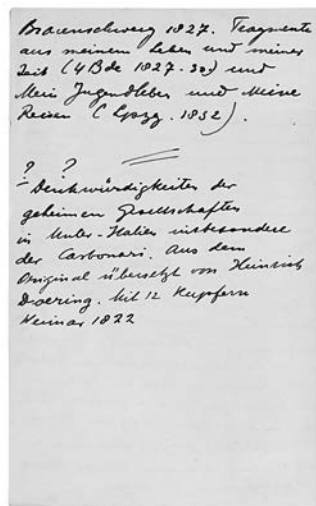 Braunschweig 1827. Fragmente
aus meinem Leben und meiner
Zeit (4 Bde 1827-30) und
Mein Jugendleben und Meine
Reisen (Lpzg. 1832).
? ?
- Denkwürdigkeiten der
geheimen Gesellschaften
in Unter-Italien insbesondere
der Carbonari. Aus dem
Original übersetzt von Heinrich
Doering. Mit 12 Kupfern
Weimar 1822